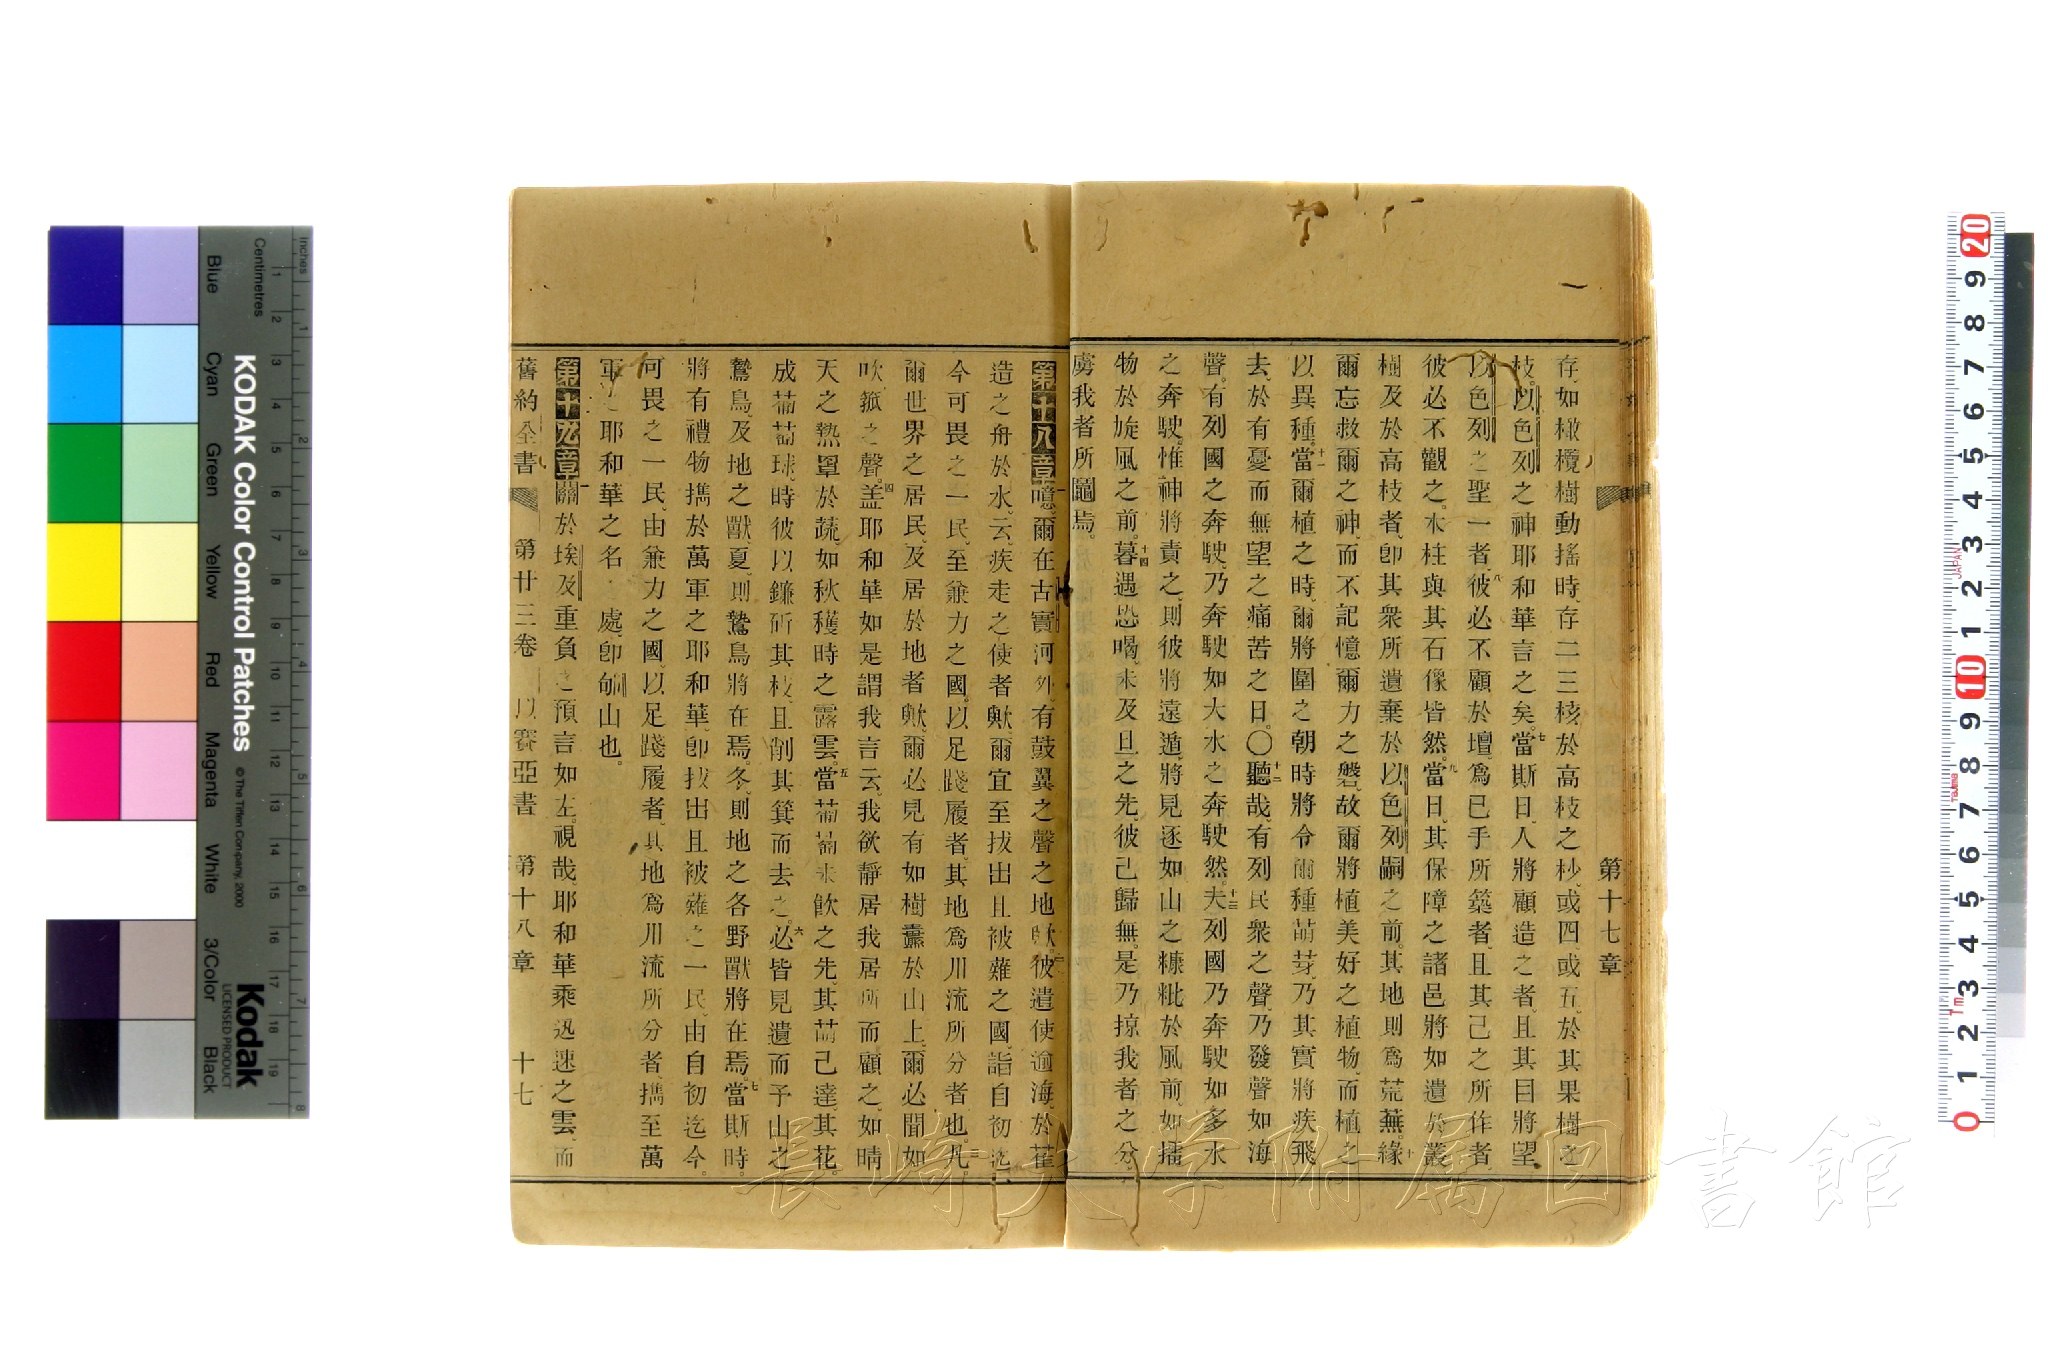 第十七章
存、如橄欖樹動搖時、存二三核於高枝之杪、或四或五、於其果樹之
枝。以色列之神耶和華言之矣。七當斯日、人將顧造之者、且其目將望
以色列之聖一者、八彼必不顧於壇、爲己手所築者、且其己之所作者、
彼必不觀之、木柱與其石像皆然。九當日、其保障之諸邑將如遺於叢
樹及於高枝者、卽其衆所遺棄於以色列嗣之前、其地則爲荒蕪。十緣
爾忘救爾之神、而不記憶爾力之磐、故爾將植美好之植物、而植之
以異種。十一當爾植之時、爾將圍之、朝時將令爾種萌芽、乃其實將疾飛
去、於有憂而無望之痛苦之日。〇十二聽哉、有列民衆之聲、乃發聲如海
聲、有列國之奔駛、乃奔駛如大水之奔駛然。十三夫列國乃奔駛如多水
之奔駛、惟神將責之、則彼將遠遁、將見逐如山之糠粃於風前、如擂
物於旋風之前。十四暮遇恐喝、未及旦之先、彼已歸無、是乃掠我者之分、
虜我者所鬮焉。
第十八章一噫、爾在古實河外、有鼓翼之聲之地歟。二彼遣使逾海、於萑
造之舟於水、云、疾走之使者歟、爾宜至扙出且被薙之國、詣自初迄
今可畏之一民、至兼力之國、以足踐履者、其地爲川流所分者也。三凡
爾世界之居民、及居於地者歟、爾必見有如樹纛於山上、爾必聞如
吹箛之聲。四盖耶和華如是謂我言云、我欲靜居我居所而顧之、如晴
天之熱罩於蔬、如秋穫時之露雲。五當葡萄未飮之先、其萌已達、其花
成葡萄球、時彼以鐮斫其枝、且削其箕而去之。六必皆見遺而予山之
鷙鳥及地之獸、夏則鷙鳥將在焉、冬則地之各野獸將在焉。七當斯時、
將有禮物攜於萬軍之耶和華、卽扙出且被薙之一民、由自初迄今
可畏之一民、由兼力之國、以足踐履者、其地爲川流所分者、攜至萬
軍之耶和華之名之處、卽郇山也。
第十九章一關於埃及重負之預言如左。視哉、耶和華乘迅速之雲、而
舊約全書 第廿三卷 以賽亞書 第十八章 十七
KODAK Color Control Patches
© The Tiffen Company, 2000
Kodak
LICENSED PRODUCT
Blue Cyan Green Yellow Red Magenta White 3/Color Black
Inches
Centimetres
長崎大学附属図書館
JAPAN